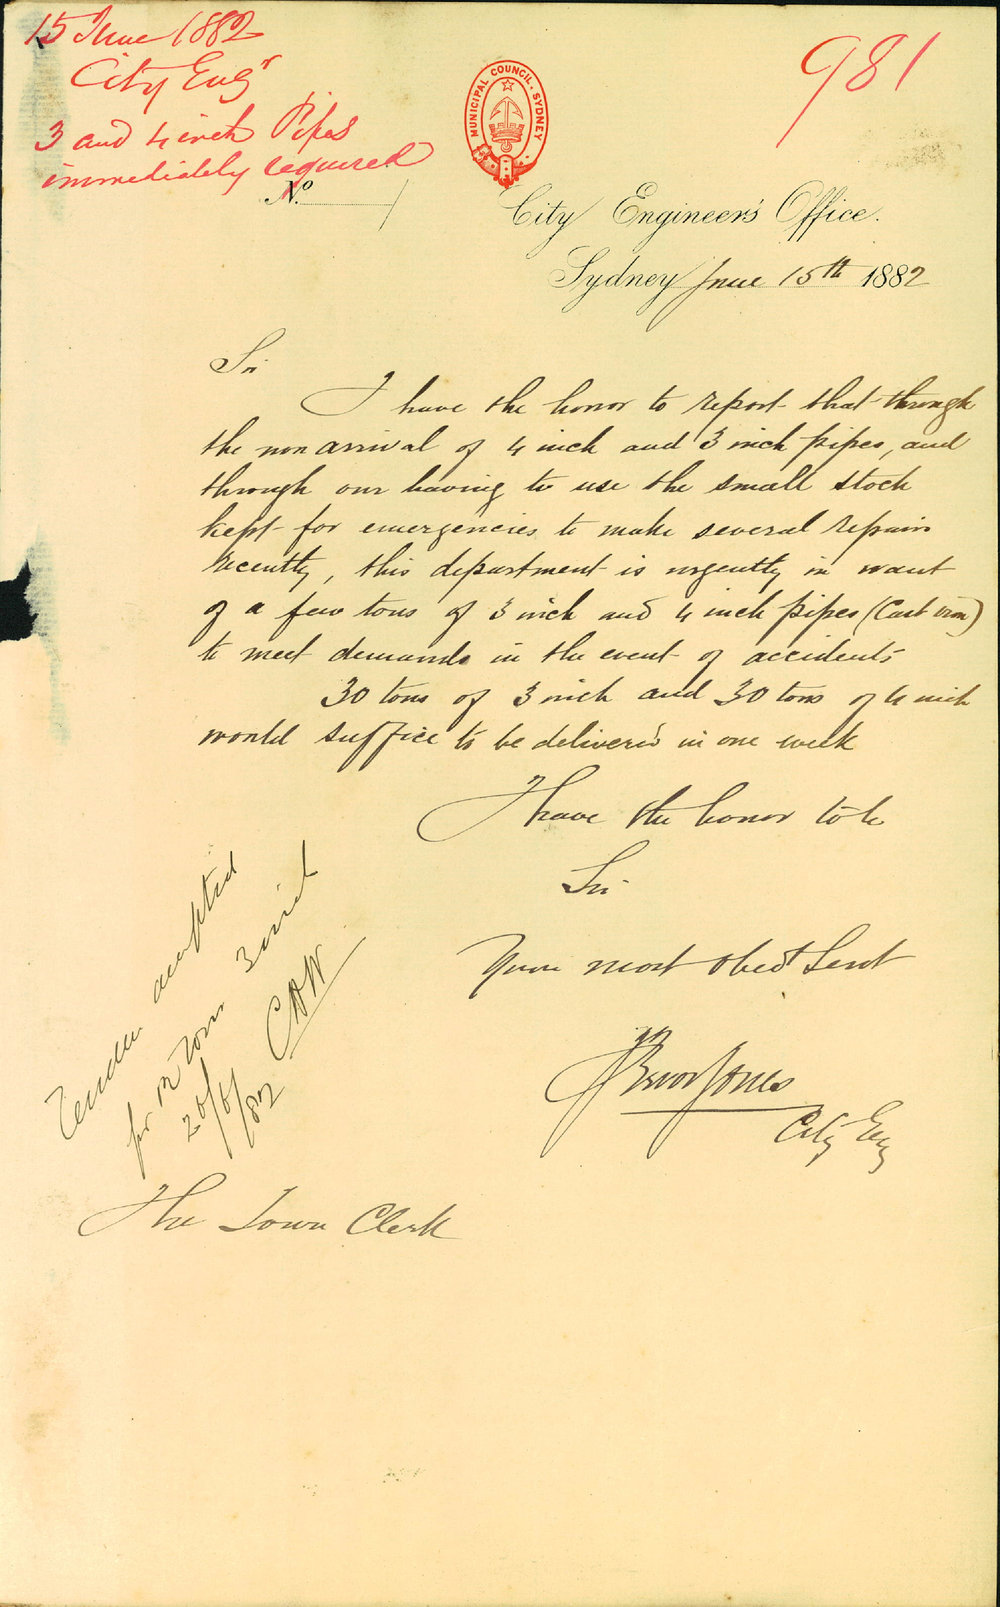 15 June 1882
City Engr
3 and 4 inch Pipes
immediately required
981
MUNICIPAL COUNCIL. SYDNEY
No.
City Engineer's Office.
Sydney June 15th 1882
Sir
I have the honor to report that through
the non arrival of 4 inch and 3 inch pipes, and
through our having to use the small stock
kept for emergencies to make several repairs
recently, this department is urgently in want
of a few tons of 3 inch and 4 inch pipes (Cast iron)
to meet demands in the event of accidents
30 tons of 3 inch and 30 tons of 4 inch
would suffice to be delivered in one week
I have the honor to be
Sir
Your most obedt Servt
Trevor Jones
City Eng
Tender accepted
for 12 Tons 3 inch
26/6/82
The Town Clerk